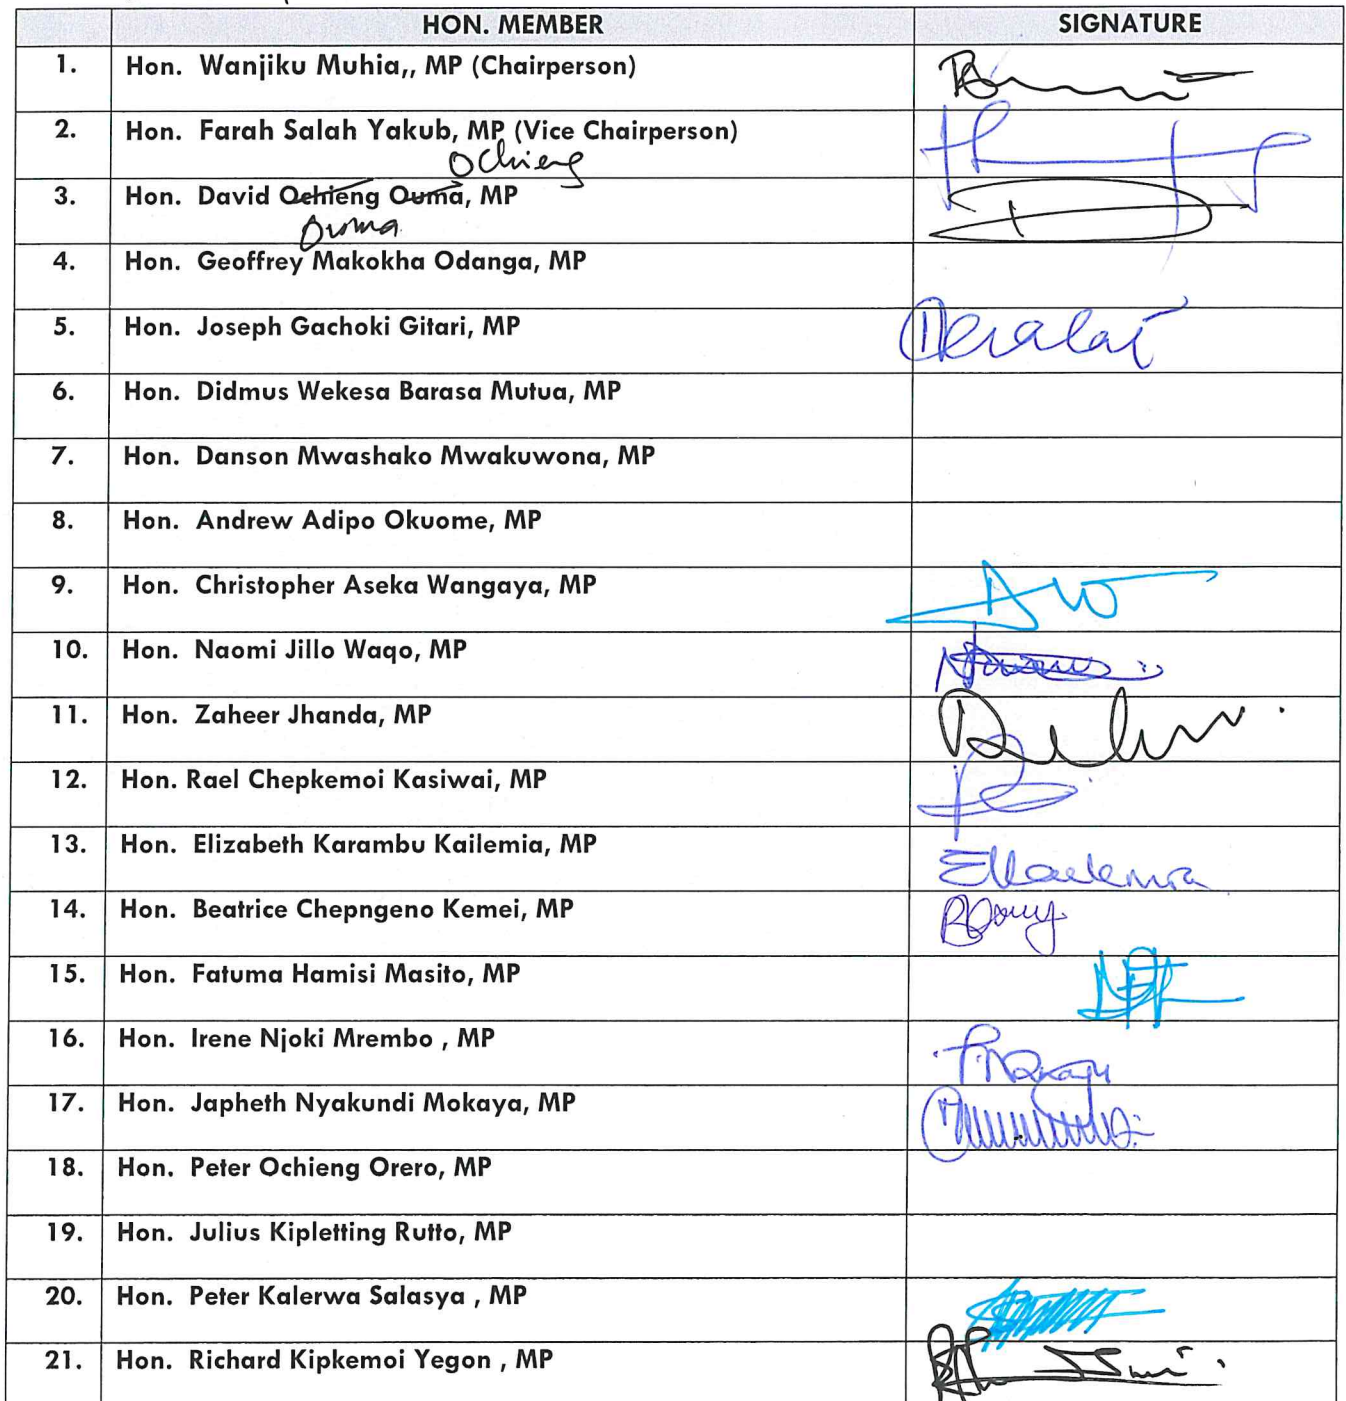 HON. MEMBER SIGNATURE
1. Hon. Wanjiku Muhia,, MP (Chairperson)
2. Hon. Farah Salah Yakub, MP (Vice Chairperson)
Ochieng
3. Hon. David Ochieng Ouma, MP
Ouma
4. Hon. Geoffrey Makokha Odanga, MP
5. Hon. Joseph Gachoki Gitari, MP
6. Hon. Didmus Wekesa Barasa Mutua, MP
7. Hon. Danson Mwashako Mwakuwona, MP
8. Hon. Andrew Adipo Okuome, MP
9. Hon. Christopher Aseka Wangaya, MP
10. Hon. Naomi Jillo Waqo, MP
11. Hon. Zaheer Jhanda, MP
12. Hon. Rael Chepkemoi Kasiwai, MP
13. Hon. Elizabeth Karambu Kailemia, MP
14. Hon. Beatrice Chepngeno Kemei, MP
15. Hon. Fatuma Hamisi Masito, MP
16. Hon. Irene Njoki Mrembo , MP
17. Hon. Japheth Nyakundi Mokaya, MP
18. Hon. Peter Ochieng Orero, MP
19. Hon. Julius Kipletting Rutto, MP
20. Hon. Peter Kalerwa Salasya , MP
21. Hon. Richard Kipkemoi Yegon , MP